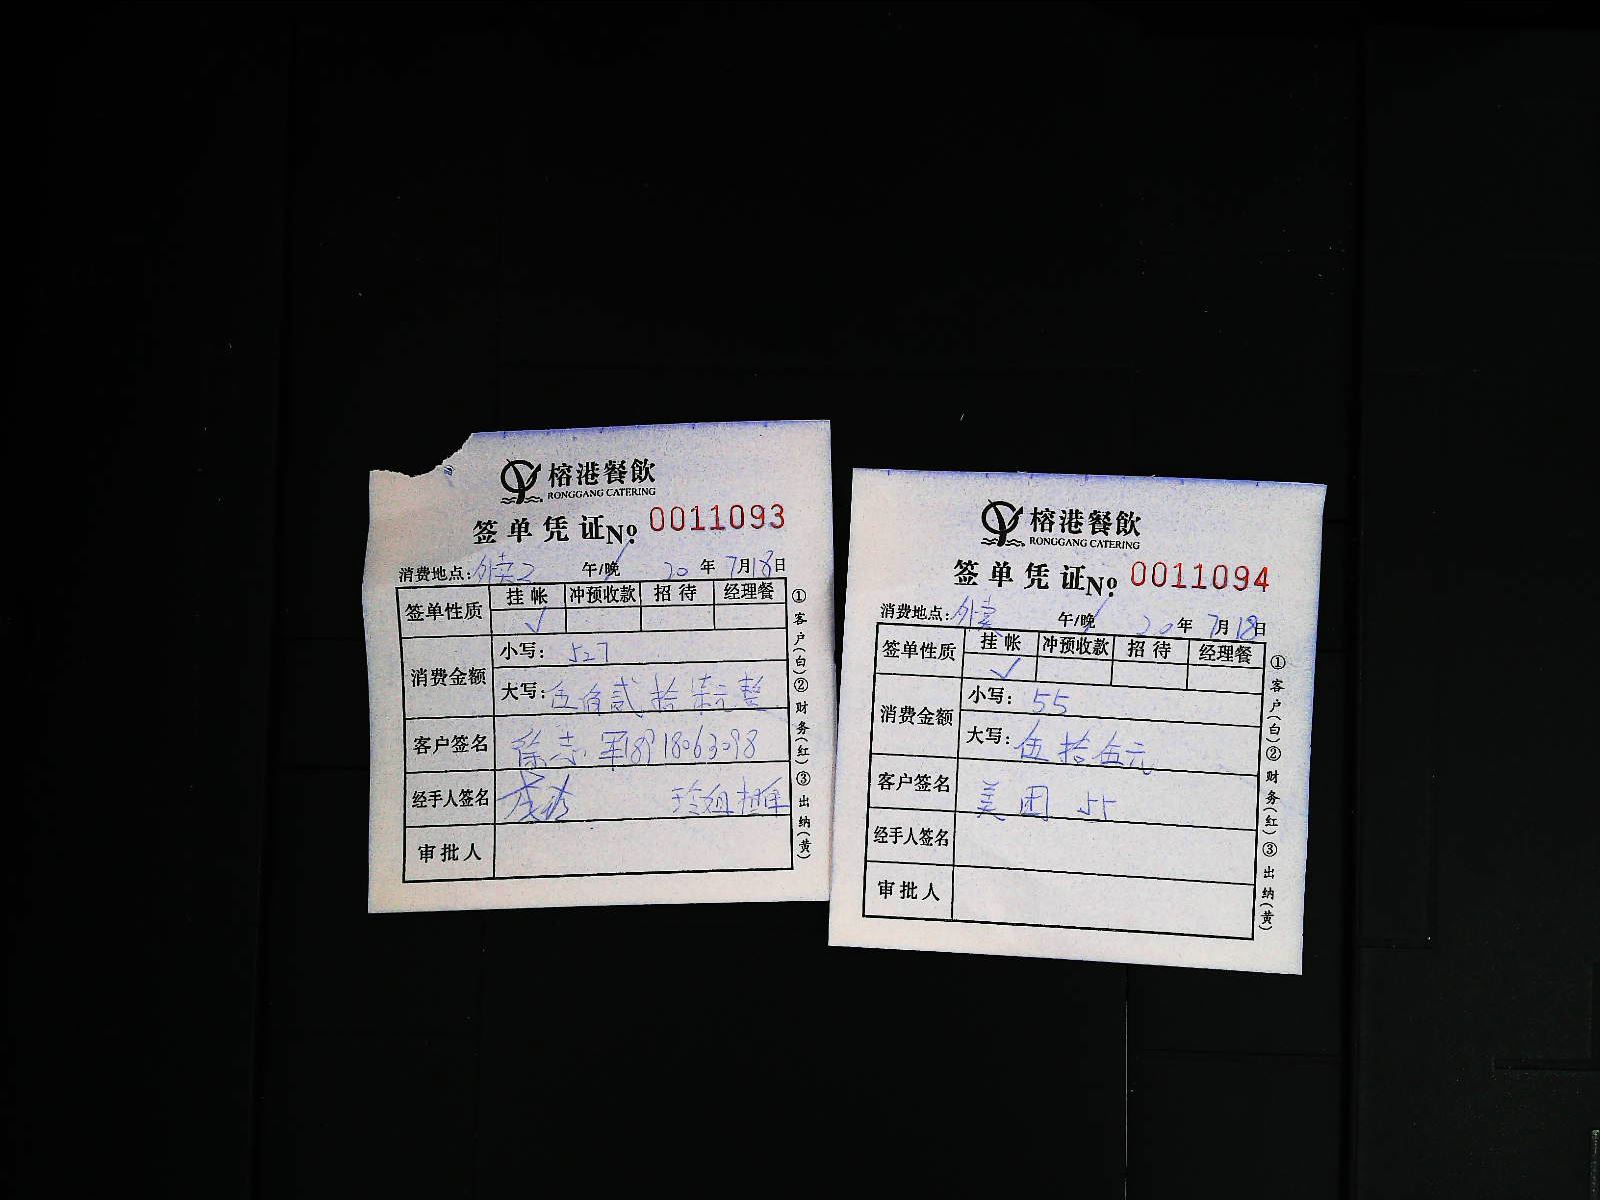 榕港餐飲
RONGGANG CATERING
签单凭证 Nº 0011093
消费地点: 外卖2 午/晚 20 年 7月18日
签单性质 挂帐 冲预收款 招待 经理餐
✓
消费金额 小写: 527
大写: 伍佰贰拾柒元整
客户签名 徐志军 18918063098
经手人签名 玲姐担保
审批人
①客户(白)②财务(红)③出纳(黄)
榕港餐飲
RONGGANG CATERING
签单凭证 Nº 0011094
消费地点: 外卖 午/晚 20 年 7月18日
签单性质 挂帐 冲预收款 招待 经理餐
✓
消费金额 小写: 55
大写: 伍拾伍元
客户签名 美团 55
经手人签名
审批人
①客户(白)②财务(红)③出纳(黄)